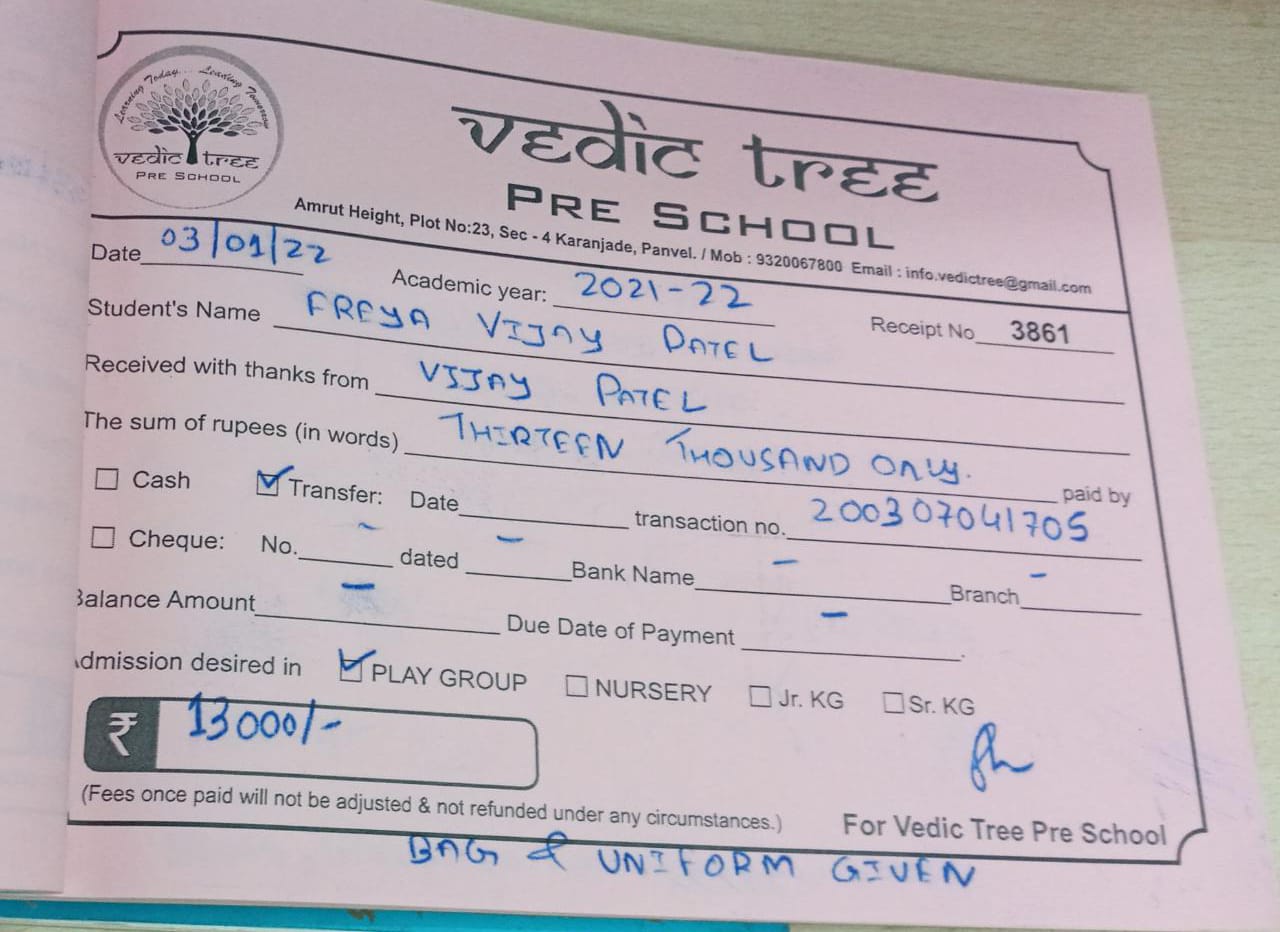 Learning Today... Leading Tomorrow
vedic tree
PRE SCHOOL
vedic tree
PRE SCHOOL
Amrut Height, Plot No:23, Sec - 4 Karanjade, Panvel. / Mob : 9320067800 Email : info.vedictree@gmail.com
Date 03/01/22 Academic year: 2021-22
Student's Name FREYA VIJAY PATEL Receipt No 3861
Received with thanks from VIJAY PATEL
The sum of rupees (in words) THIRTEEN THOUSAND ONLY. paid by
Cash Transfer: Date transaction no. 200307041705
Cheque: No. - dated - Bank Name - Branch -
Balance Amount - Due Date of Payment - .
Admission desired in PLAY GROUP NURSERY Jr. KG Sr. KG
₹ 13000/-
(Fees once paid will not be adjusted & not refunded under any circumstances.) For Vedic Tree Pre School
BAG & UNIFORM GIVEN